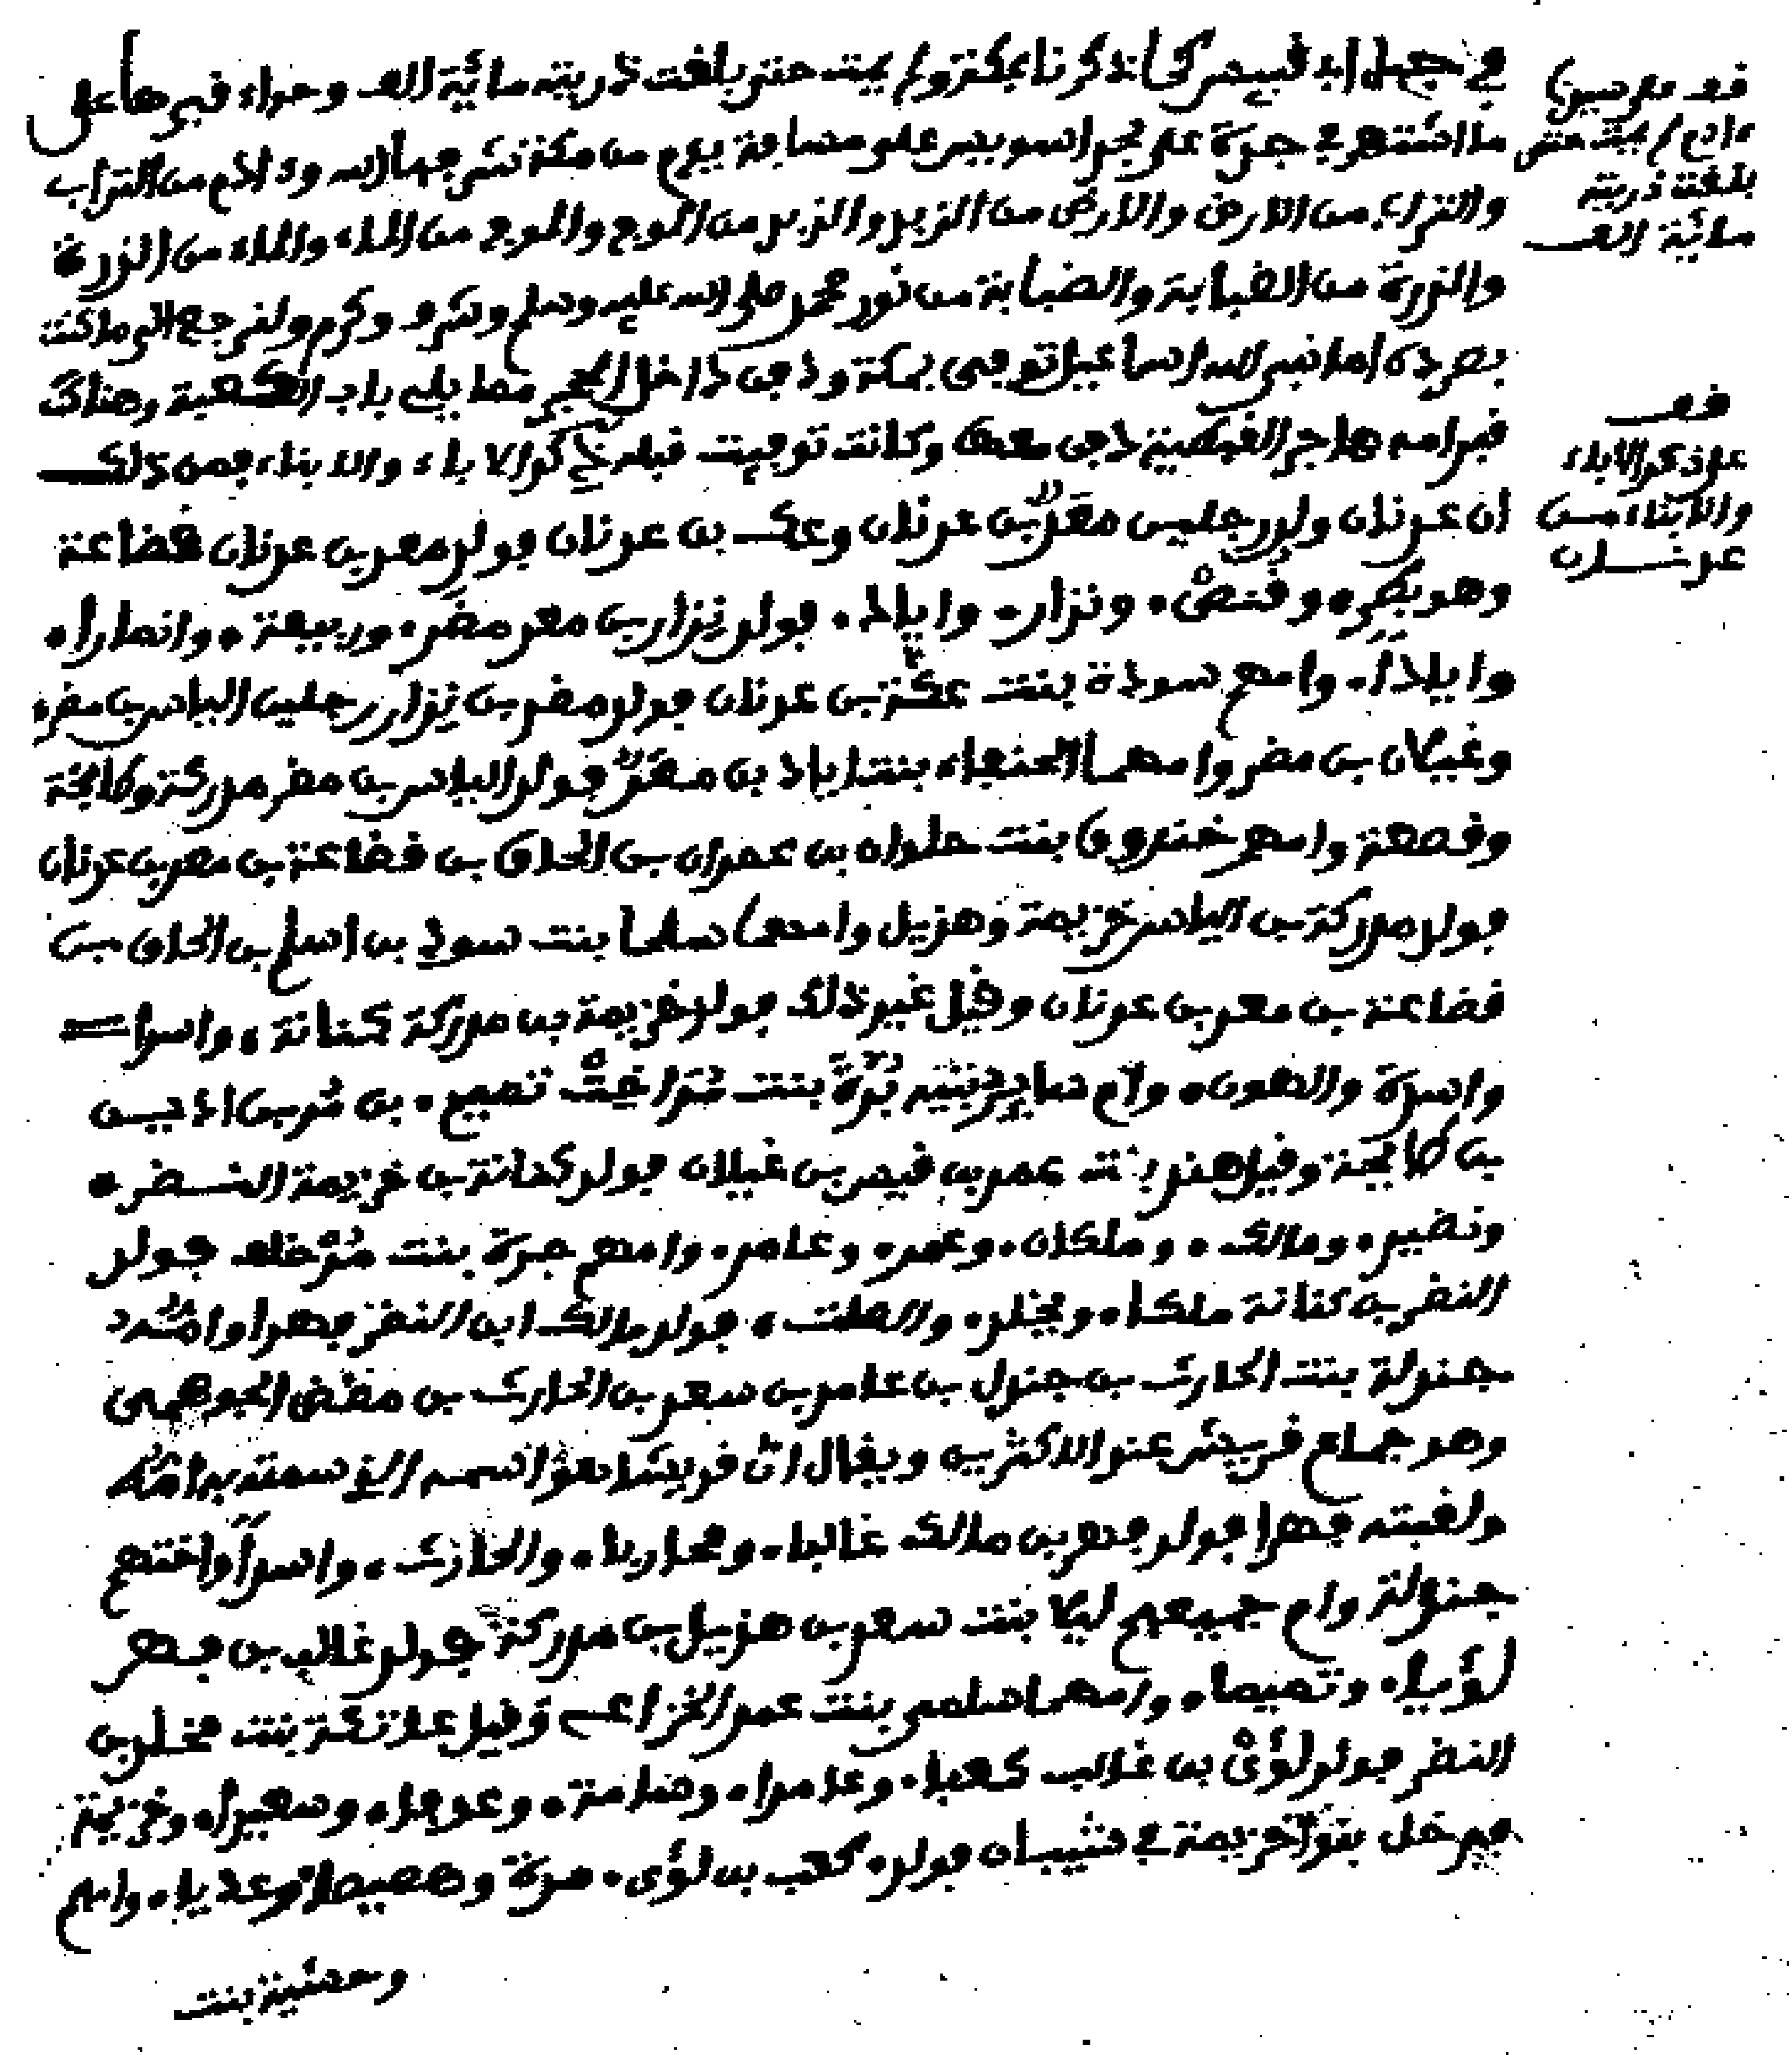 في جبل أبي قبيس كما ذكرنا بمكة ولم يمت حتى بلغت ذريته مائة الف وحواء قبرها على
ما اشتهر في جدة على بحر السويس على مسافة يوم من مكة شرفها الله وءادم من التراب
والتراب من الارض والارض من الزبد والزبد من الموج والموج من الماء والماء من الدرة
والدرة من الضبابة والضبابة من نور محمد صلى الله عليه وسلم وشرف وكرم ولنرجع الى ما كنت
بصدده اما نبي الله اسماعيل توفي بمكة ودفن داخل الحجر مما يلي باب الكعبة وهناك
قبر امه هاجر القبطية دفن معها وكانت توفيت قبله ذكر الاباء والابناء فمن ذلك
ان عدنان ولد رجلين معد بن عدنان وعك بن عدنان فولد معد بن عدنان قضاعة
وهو بكره وقنص ونزار وايادا فولد نزار بن معد مضر وربيعة وانمارا
وايادا وامهم سودة بنت عك بن عدنان فولد مضر بن نزار رجلين الياس بن مضر
وغيلان بن مضر وامهما الحنفاء بنت اياد بن معد فولد الياس بن مضر مدركة وطابخة
وقمعة وامهم خندف بنت حلوان بن عمران بن الحاف بن قضاعة بن معد بن عدنان
فولد مدركة بن الياس خزيمة وهذيل وامهما سلما بنت سود بن اسلم بن الحاف بن
قضاعة بن معد بن عدنان وقيل غير ذلك فولد خزيمة بن مدركة كنانة واسدا
واسدة والهون وأم ساير بنيه برة بنت مر اخت تميم بن مر بن اد بن
بن طابخة وقيل هند بنت عمر بن قيس بن غيلان فولد كنانة بن خزيمة النضر
ونضير ومالك وملكان وعمر وعامر وامهم برة بنت مر خلف فولد
النضر بن كنانة ملكا ويخلد والصلت فولد مالك ابن النضر فهرا وامه
جندلة بنت الحارث بن جندل بن عامر بن سعد بن الحارث بن مضض الجرهمي
وهو جماع قريش عند الاكثرين ويقال ان قريشا هو اسمه الذي سمته به امه
ولقبته فهرا فولد فهر بن مالك غالبا ومحاربا والحارث واسدا واختهم
جندلة وام جميعهم ليلا بنت سعد بن هذيل بن مدركة فولد غالب بن فهر
لؤيا وتميما وامهما سلمى بنت عمر الخزاعي وقيل عاتكة بنت مخلد بن
النضر فولد لؤي بن غالب كعبا وعامرا وسامة وعوفا وسعيدا وخزيمة
فدخل بنوا خزيمة في شيبان فولد كعب بن لؤي مرة وهصيصا وعديا وامهم
وحشية بنت
قف
ءادم لم يمت حتى
بلغت ذريته
مائة الف
قف
على ذكر الاباء
والابناء من
عدنان